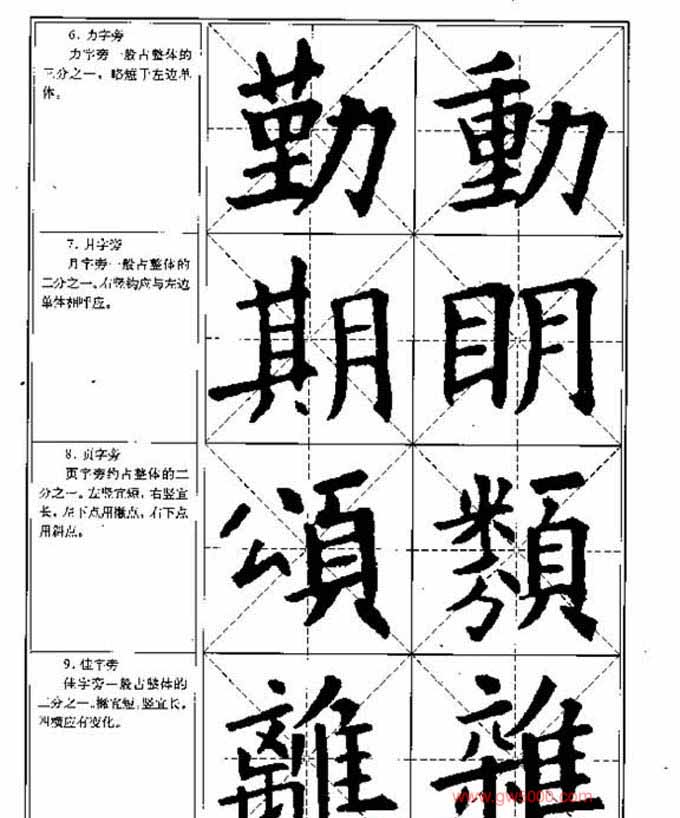 6. 力字旁
力字旁一般占整体的
三分之一，略短于左边单
体。
勤 動
7. 月字旁
月字旁一般占整体的
二分之一。右竖钩应与左边
单体相呼应。
期 眀
8. 页字旁
页字旁约占整体的二
分之一。左竖宜短，右竖宜
长，左下点用撇点，右下点
用斜点。
頌 類
9. 隹字旁
隹字旁一般占整体的
二分之一。撇宜短，竖宜长，
四横应有变化。
離 雜